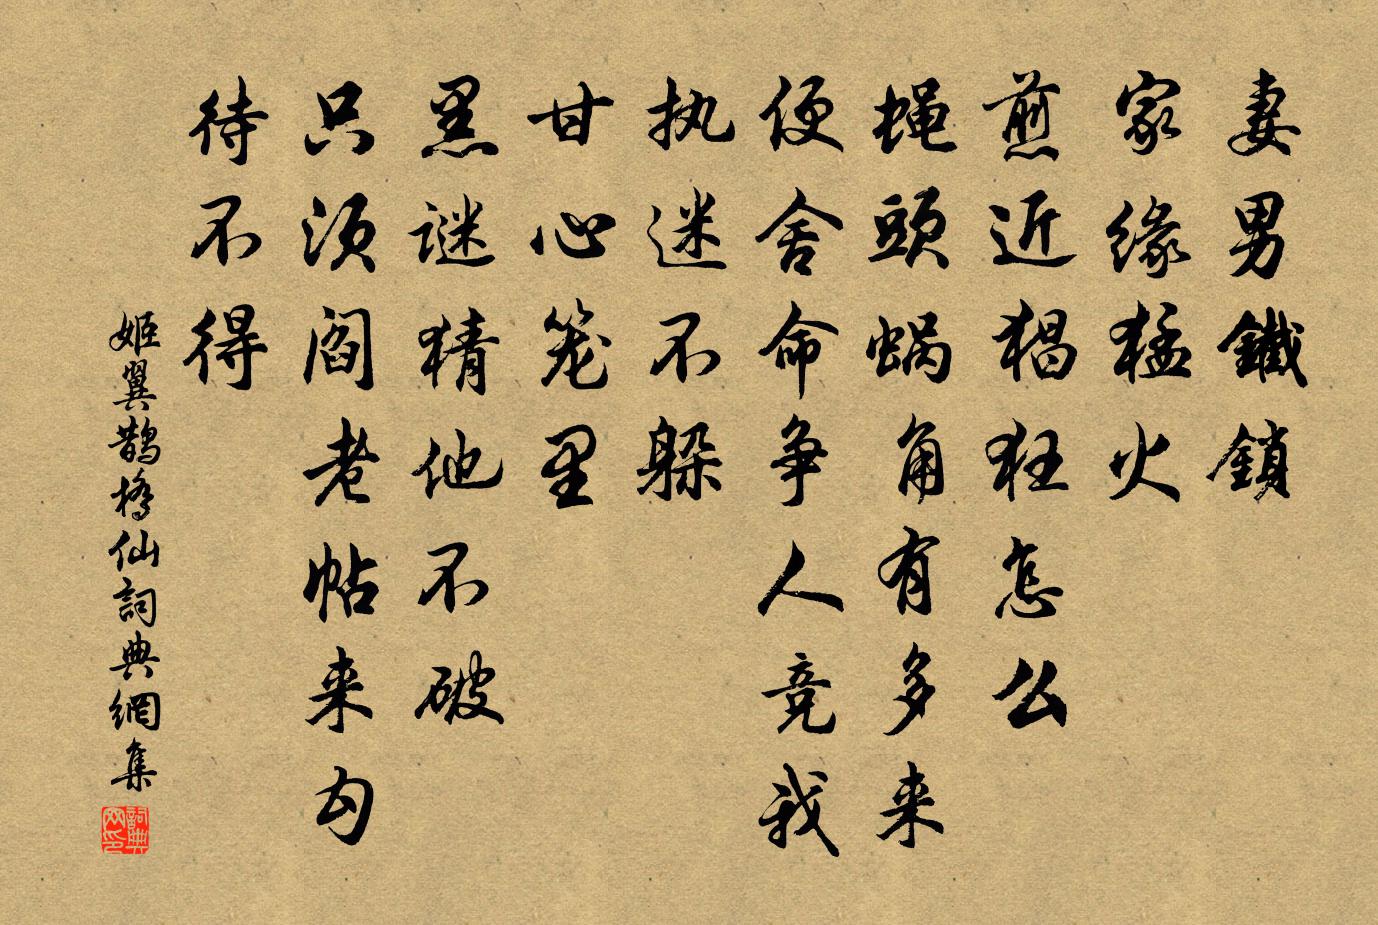 妻男鐵鎖
家缘猛火
煎近猖狂怎么
蝇頭蜗角有多来
便舍命争人竞我
执迷不躲
甘心笼里
黑谜猜他不破
只须阎老帖来勾
待不得
姬翼鵲橋仙詞典網集
詞典網印